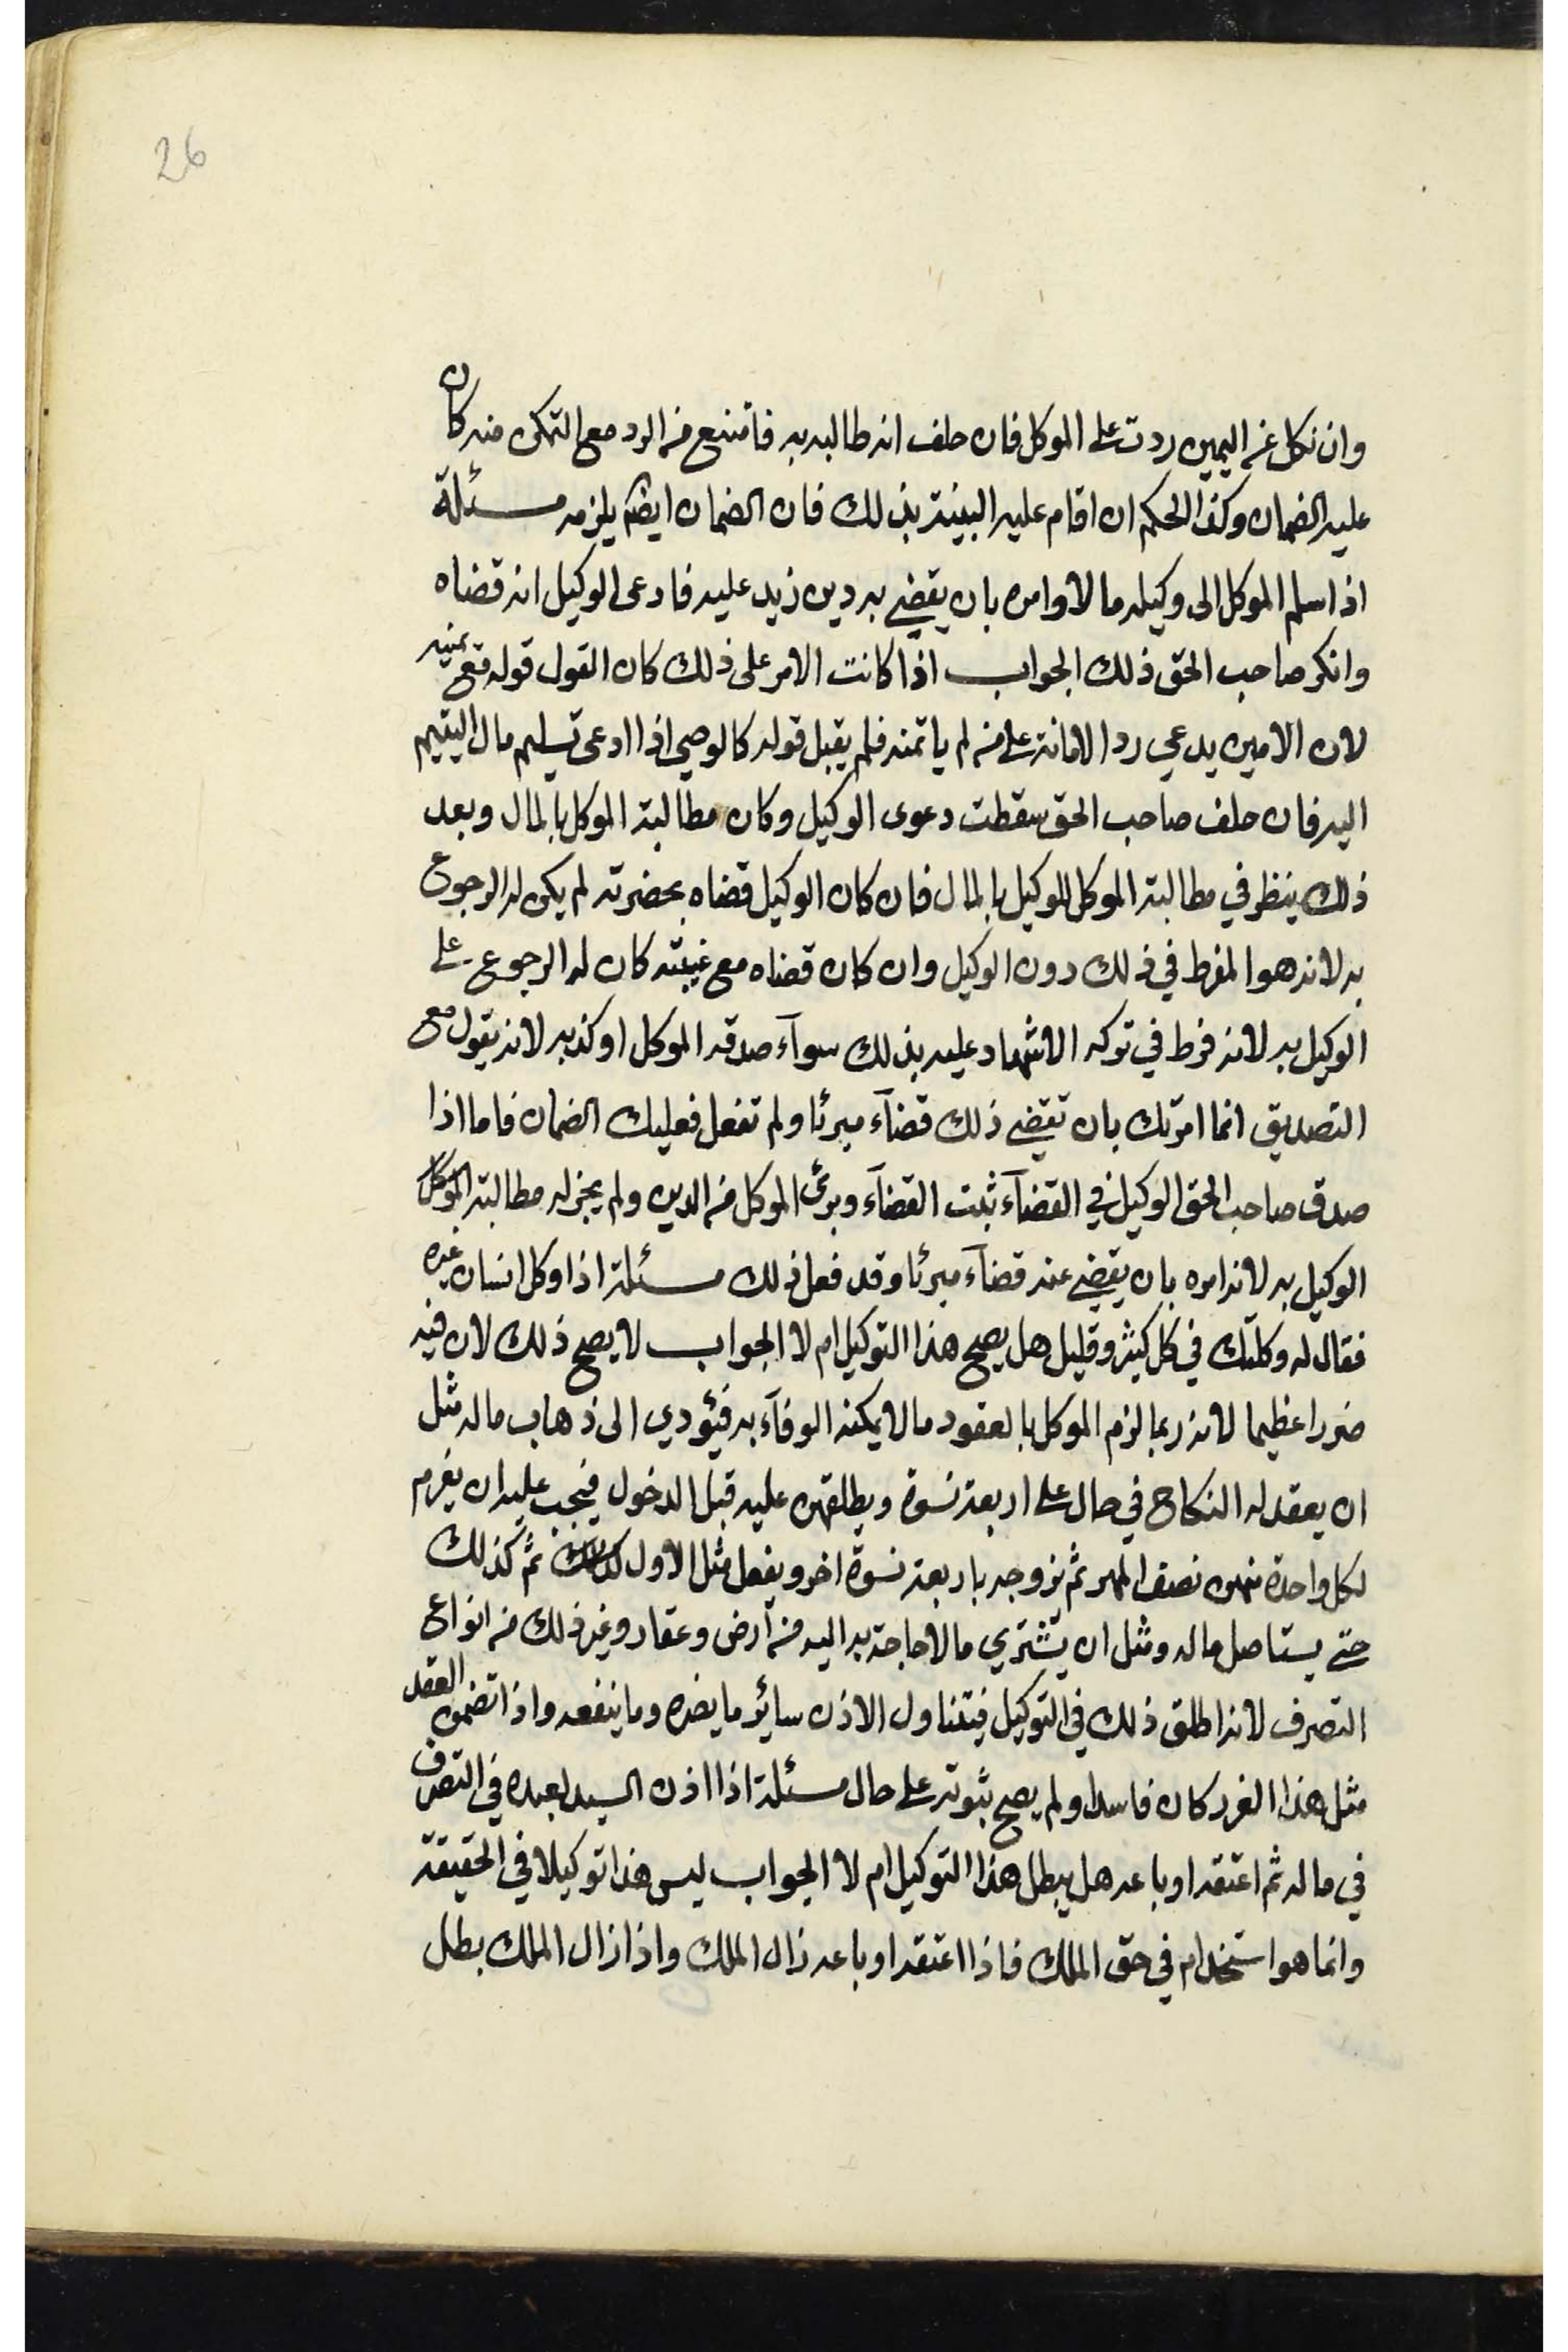 26
وان نكل عن اليمين ردت على الموكل فان حلف انه طالبه به فامتنع من الرد مع التمكن منه كان
عليه الضمان وكذا الحكم ان اقام عليه البينة بذلك فان الضمان ايضا يلزمه مسئلة
اذا سلم الموكل الى وكيله مالا وامره بان يقضي به دين زيد عليه فادعى الوكيل انه قضاه
وانكر صاحب الحق ذلك الجواب اذا كانت الامر على ذلك كان القول قوله مع يمينه
لان الامين يدعي رد الامانة على من لم ياتمنه فلم يقبل قوله كالوصي اذا ادعى تسليم مال اليتيم
اليه فان حلف صاحب الحق سقطت دعوى الوكيل وكان مطالبة الموكل بالمال وبعد
ذلك ينظر في مطالبة الموكل للوكيل بالمال فان كان الوكيل قضاه بحضرته لم يكن له الرجوع
به لانه هو المفرط في ذلك دون الوكيل وان كان قضاه مع غيبته كان له الرجوع على
الوكيل به لانه فرط في تركه الاشهاد عليه بذلك سوآء صدقه الموكل او كذبه لانه يقول مع
التصديق انما امرتك بان تقضي ذلك قضآء مبرئا ولم تفعل فعليك الضمان فاما اذا
صدق صاحب الحق الوكيل في القضآء ثبت القضآء وبرئ الموكل من الدين ولم يجز له مطالبة الموكل
الوكيل به لانه امره بان يقضي عنه قضآء مبرئا وقد فعل ذلك مسئلة اذا وكل انسان غيره
فقال له وكلتك في كل كثير وقليل هل يصح هذا التوكيل ام لا الجواب لا يصح ذلك لان فيه
ضررا عظيما لانه ربما لزم الموكل بالعقود ما لا يمكنه الوفآء به فيئودي الى ذهاب ماله مثل
ان يعقد له النكاح في حال على اربعة نسوة ويطلقهن عليه قبل الدخول فيجب عليه ان يغرم
لكل واحدة منهن نصف المهر ثم يزوجه باربعة نسوة اخر ويفعل مثل الاول ثم كذلك
حتى يستاصل ماله ومثل ان يشتري ما لا حاجة به اليه من أرض وعقار وغير ذلك من انواع
التصرف لانه اطلق ذلك في التوكيل فيتناول الاذن سائر ما يضره وما ينفعه واذا تضمن العقد
مثل هذا الغرر كان فاسدا ولم يصح ثبوته على حال مسئلة اذا اذن السيد لعبده في التصرف
في ماله ثم اعتقه او باعه هل يبطل هذا التوكيل ام لا الجواب ليس هذا توكيلا في الحقيقة
وانما هو استخدام في حق الملك فاذا اعتقه او باعه زال الملك واذا زال الملك بطل